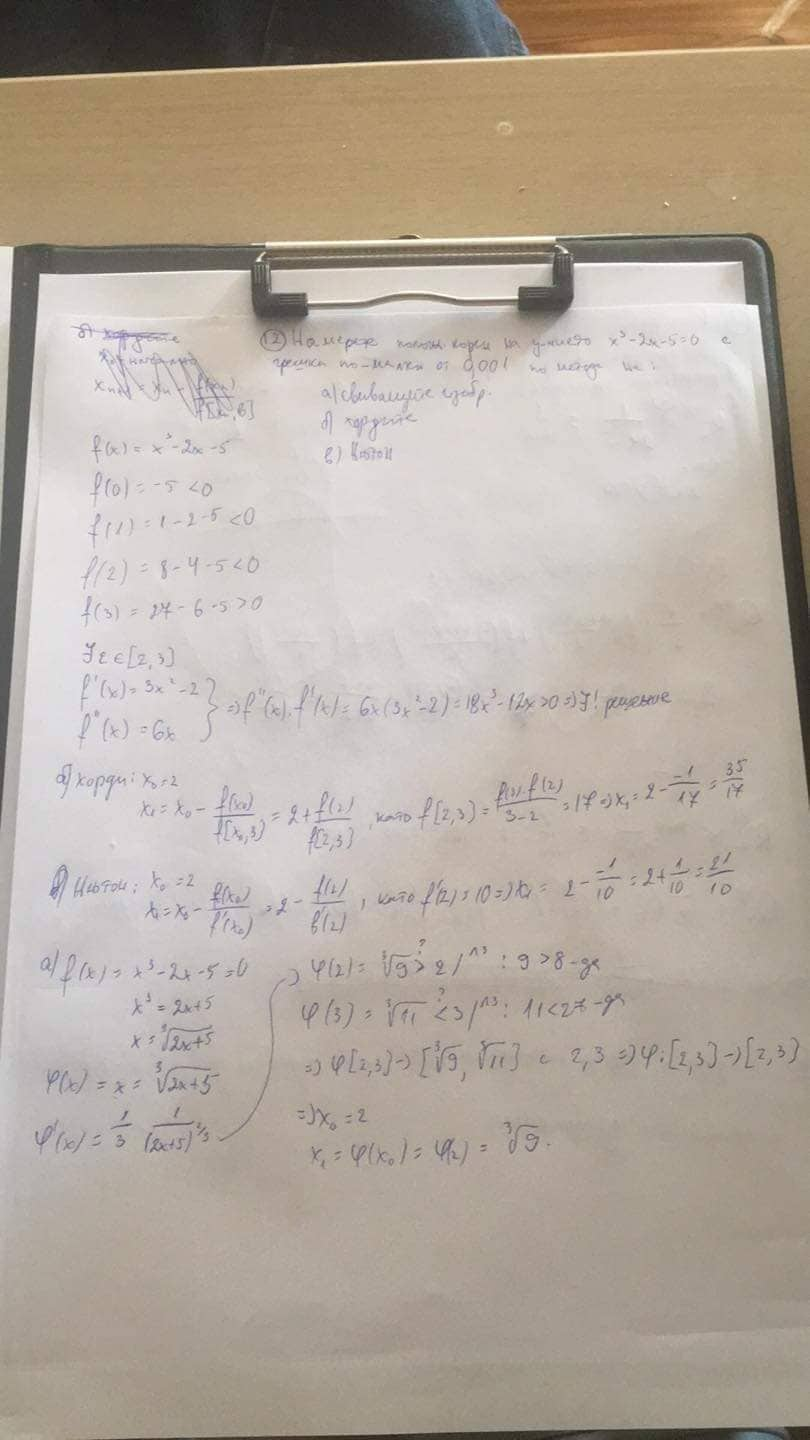 б) хордите
x₀ начално
xₙ₊₁ = xₙ - f(xₙ)/f[xₙ, b]
12) Да се намери корен на у-нието x³-2x-5=0 с
грешка по-малка от 0,001 по метода на:
а) свиващите изобр.
б) хордите
в) Нютон
f(x) = x³-2x-5
f(0) = -5 <0
f(1) = 1-2-5 <0
f(2) = 8-4-5 <0
f(3) = 27-6-5 >0
∃ ξ ∈ [2,3]
f'(x) = 3x²-2
f''(x) = 6x } => f''(x).f'(x) = 6x(3x²-2) = 18x³-12x>0 => ∃! решение
б) хорди: x₀=2
x₁ = x₀ - f(x₀)/f[x₀,3] = 2 + f(2)/f[2,3], като f[2,3] = f(3)-f(2)/3-2 = 17 => x₁ = 2 - -1/17 = 35/17
в) Нютон: x₀ = 2
x₁ = x₀ - f(x₀)/f'(x₀) = 2 - f(2)/f'(2), като f'(2) = 10 => x₁ = 2 - -1/10 = 2 + 1/10 = 21/10
а) f(x) = x³-2x-5=0
x³ = 2x+5
x = ∛(2x+5)
φ(x) = x = ∛(2x+5)
φ'(x) = 1/3 1/(2x+5)^2/3
φ(2) = ∛9 >? 2 /^3 : 9 >8 - да
φ(3) = ∛11 <? 3 /^3 : 11<27 - да
=> φ[2,3] -> [∛9, ∛11] ⊂ 2,3 => φ: [2,3] -> [2,3]
=> x₀ = 2
x₁ = φ(x₀) = φ(2) = ∛9.